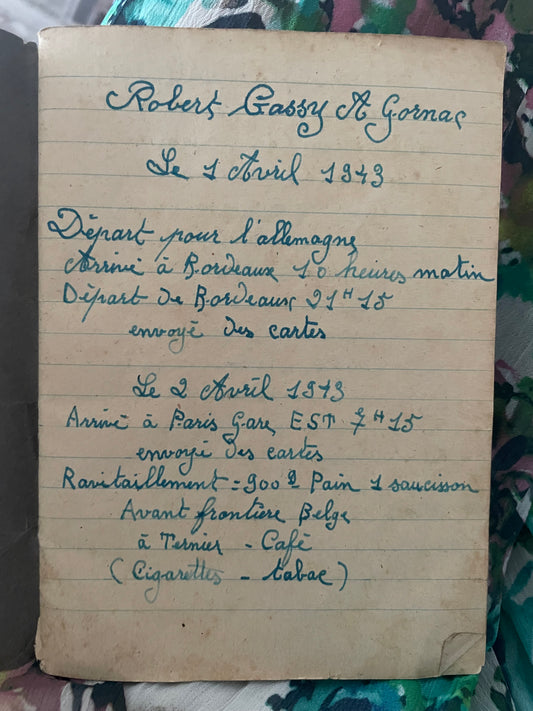 Robert Gassy A Gornac
Le 1 Avril 1943
Départ pour l'allemagne
Arrivé à Bordeaux 10 heures matin
Départ de Bordeaux 21H15
envoyé des cartes
Le 2 Avril 1943
Arrivé à Paris Gare EST 7H15
envoyé des cartes
Ravitaillement = 900g Pain 1 saucisson
Avant frontière Belge
à Ternier - Café
(Cigarettes - tabac)